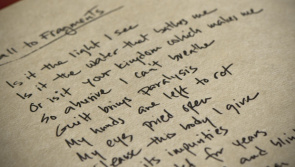 all to Fragments
Is it the light I see
Is it the water that bathes me
Or is it your kingdom which makes me
So abusive I can't breathe
Guilt brings Paralysis
My hands are left to rot
My eyes pried open
leave this body I give
its impurities
for years
and blin